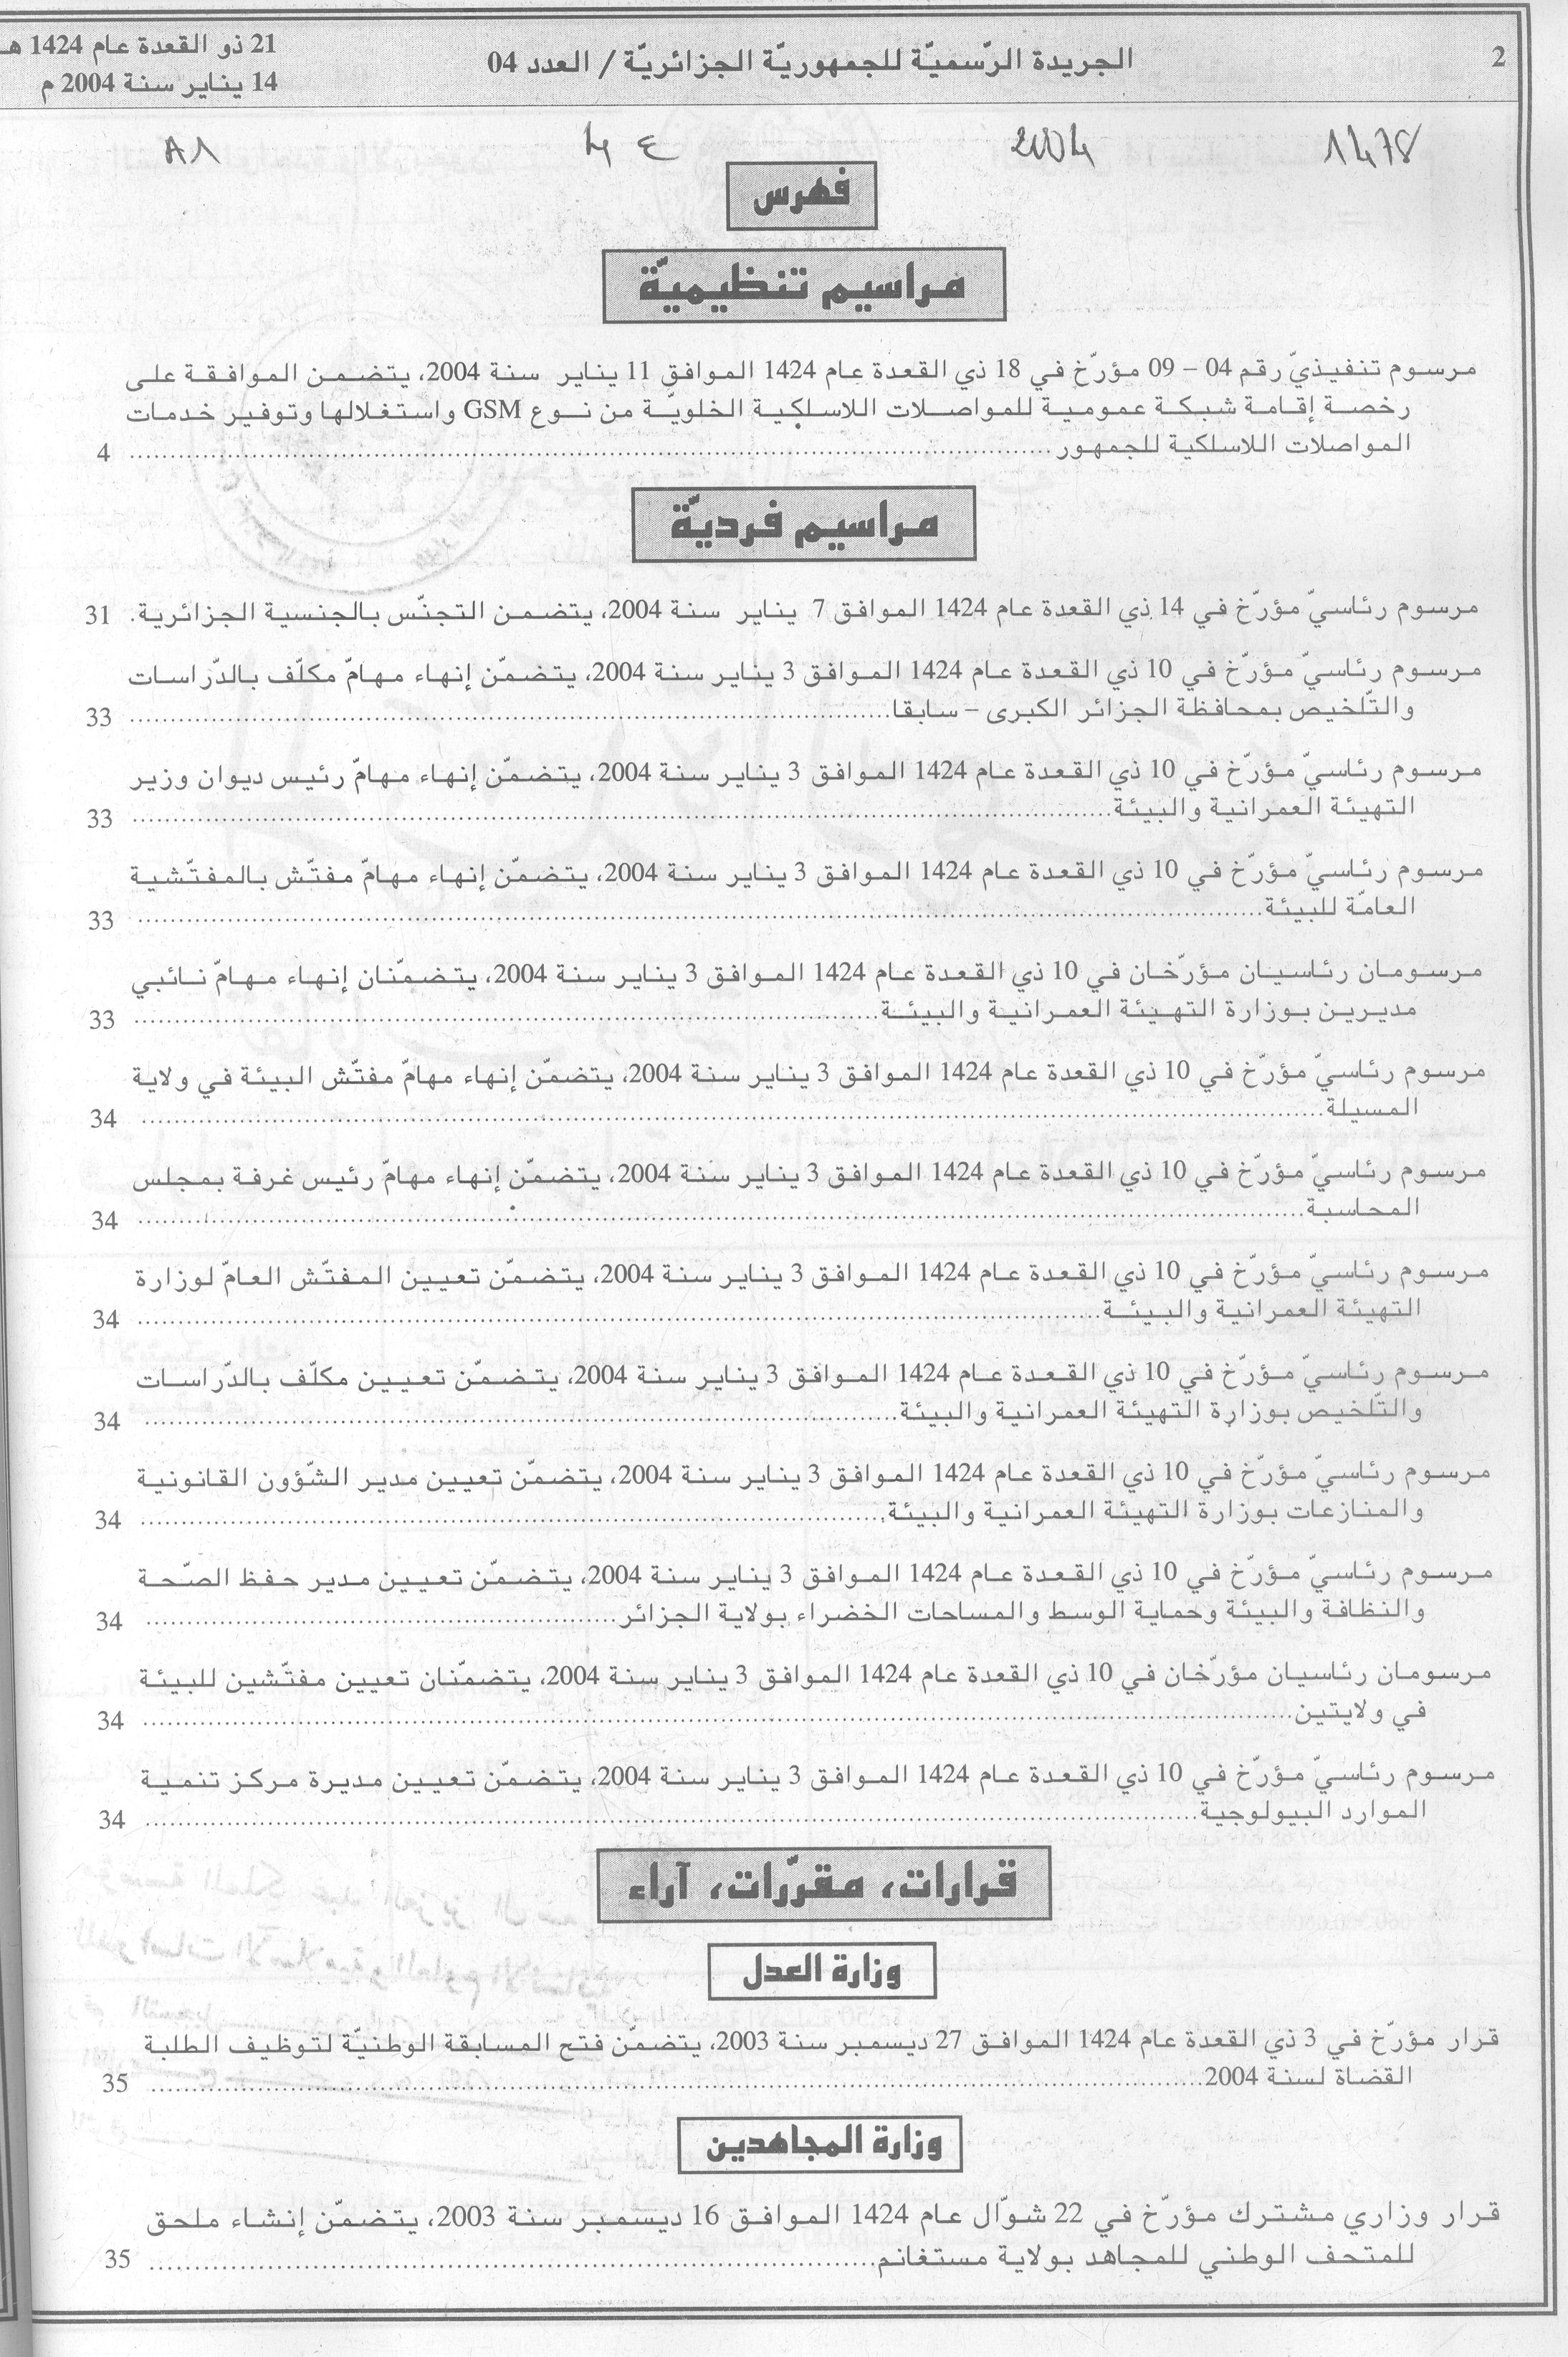 2
الجريدة الرّسميّة للجمهوريّة الجزائريّة / العدد 04
21 ذو القعدة عام 1424 هـ
14 يناير سنة 2004 م
1478 2004 4 ع
فهرس
مراسيم تنظيميّة
مرسوم تنفيذيّ رقم 04 – 09 مؤرّخ في 18 ذي القعدة عام 1424 الموافق 11 يناير سنة 2004، يتضمن الموافقة على
رخصة إقامة شبكة عمومية للمواصلات اللاسلكية الخلويّة من نوع GSM واستغلالها وتوفير خدمات
المواصلات اللاسلكية للجمهور............ 4
مراسيم فرديّة
مرسوم رئاسيّ مؤرّخ في 14 ذي القعدة عام 1424 الموافق 7 يناير سنة 2004، يتضمن التجنّس بالجنسية الجزائرية. 31
مرسوم رئاسيّ مؤرّخ في 10 ذي القعدة عام 1424 الموافق 3 يناير سنة 2004، يتضمّن إنهاء مهامّ مكلّف بالدّراسات
والتّلخيص بمحافظة الجزائر الكبرى – سابقا............ 33
مرسوم رئاسيّ مؤرّخ في 10 ذي القعدة عام 1424 الموافق 3 يناير سنة 2004، يتضمّن إنهاء مهامّ رئيس ديوان وزير
التهيئة العمرانية والبيئة............ 33
مرسوم رئاسيّ مؤرّخ في 10 ذي القعدة عام 1424 الموافق 3 يناير سنة 2004، يتضمّن إنهاء مهامّ مفتّش بالمفتّشية
العامّة للبيئة............ 33
مرسومان رئاسيان مؤرّخان في 10 ذي القعدة عام 1424 الموافق 3 يناير سنة 2004، يتضمّنان إنهاء مهامّ نائبي
مديرين بوزارة التهيئة العمرانية والبيئة............ 33
مرسوم رئاسيّ مؤرّخ في 10 ذي القعدة عام 1424 الموافق 3 يناير سنة 2004، يتضمّن إنهاء مهامّ مفتّش البيئة في ولاية
المسيلة............ 34
مرسوم رئاسيّ مؤرّخ في 10 ذي القعدة عام 1424 الموافق 3 يناير سنة 2004، يتضمّن إنهاء مهامّ رئيس غرفة بمجلس
المحاسبة............ 34
مرسوم رئاسيّ مؤرّخ في 10 ذي القعدة عام 1424 الموافق 3 يناير سنة 2004، يتضمّن تعيين المفتّش العامّ لوزارة
التهيئة العمرانية والبيئة............ 34
مرسوم رئاسيّ مؤرّخ في 10 ذي القعدة عام 1424 الموافق 3 يناير سنة 2004، يتضمّن تعيين مكلّف بالدّراسات
والتّلخيص بوزارة التهيئة العمرانية والبيئة............ 34
مرسوم رئاسيّ مؤرّخ في 10 ذي القعدة عام 1424 الموافق 3 يناير سنة 2004، يتضمّن تعيين مدير الشّؤون القانونية
والمنازعات بوزارة التهيئة العمرانية والبيئة............ 34
مرسوم رئاسيّ مؤرّخ في 10 ذي القعدة عام 1424 الموافق 3 يناير سنة 2004، يتضمّن تعيين مدير حفظ الصّحة
والنظافة والبيئة وحماية الوسط والمساحات الخضراء بولاية الجزائر............ 34
مرسومان رئاسيان مؤرّخان في 10 ذي القعدة عام 1424 الموافق 3 يناير سنة 2004، يتضمّنان تعيين مفتّشين للبيئة
في ولايتين............ 34
مرسوم رئاسيّ مؤرّخ في 10 ذي القعدة عام 1424 الموافق 3 يناير سنة 2004، يتضمّن تعيين مديرة مركز تنمية
الموارد البيولوجية............ 34
قرارات، مقرّرات، آراء
وزارة العدل
قرار مؤرّخ في 3 ذي القعدة عام 1424 الموافق 27 ديسمبر سنة 2003، يتضمّن فتح المسابقة الوطنيّة لتوظيف الطلبة
القضاة لسنة 2004............ 35
وزارة المجاهدين
قرار وزاري مشترك مؤرّخ في 22 شوّال عام 1424 الموافق 16 ديسمبر سنة 2003، يتضمّن إنشاء ملحق
للمتحف الوطني للمجاهد بولاية مستغانم............ 35